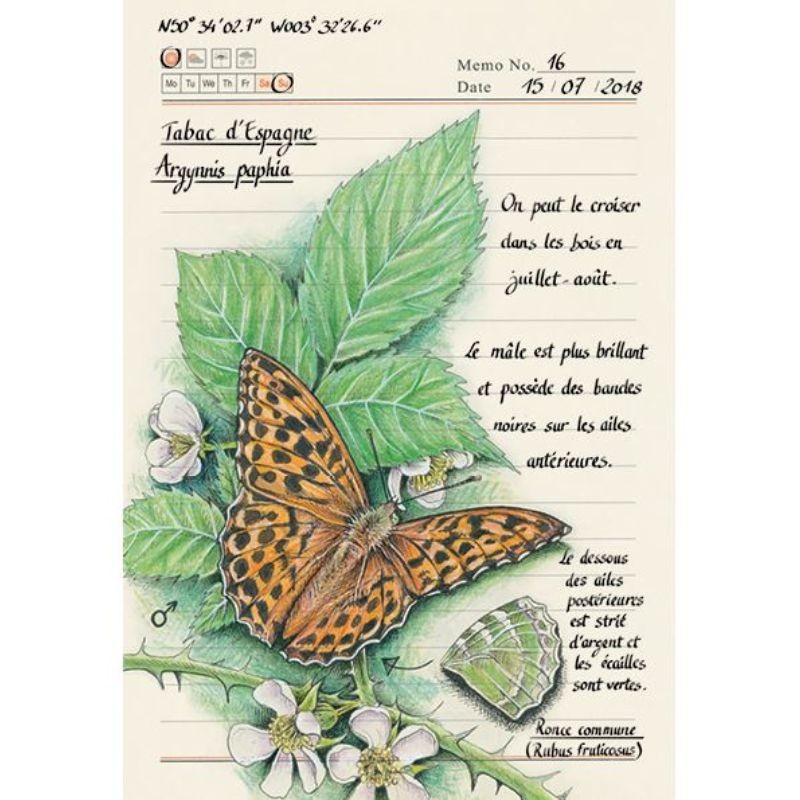 N50° 34'02.1" W003° 32'26.6"
Memo No. 16
Mo Tu We Th Fr Sa Su
Date 15 / 07 / 2018
Tabac d'Espagne
Argynnis paphia
On peut le croiser
dans les bois en
juillet-août.
Le mâle est plus brillant
et possède des bandes
noires sur les ailes
antérieures.
Le dessous
des ailes
postérieures
est strié
d'argent et
les écailles
sont vertes.
♂
Ronce commune
(Rubus fruticosus)